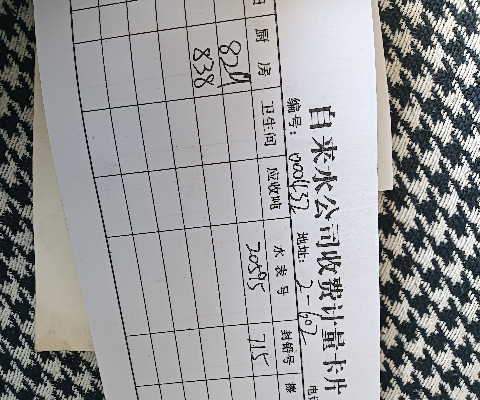 自来水公司收费计量卡片
编号: 0001432 地址: 2-602
厨房 卫生间 应收吨 水表号 封铅号
824 20595 715
838